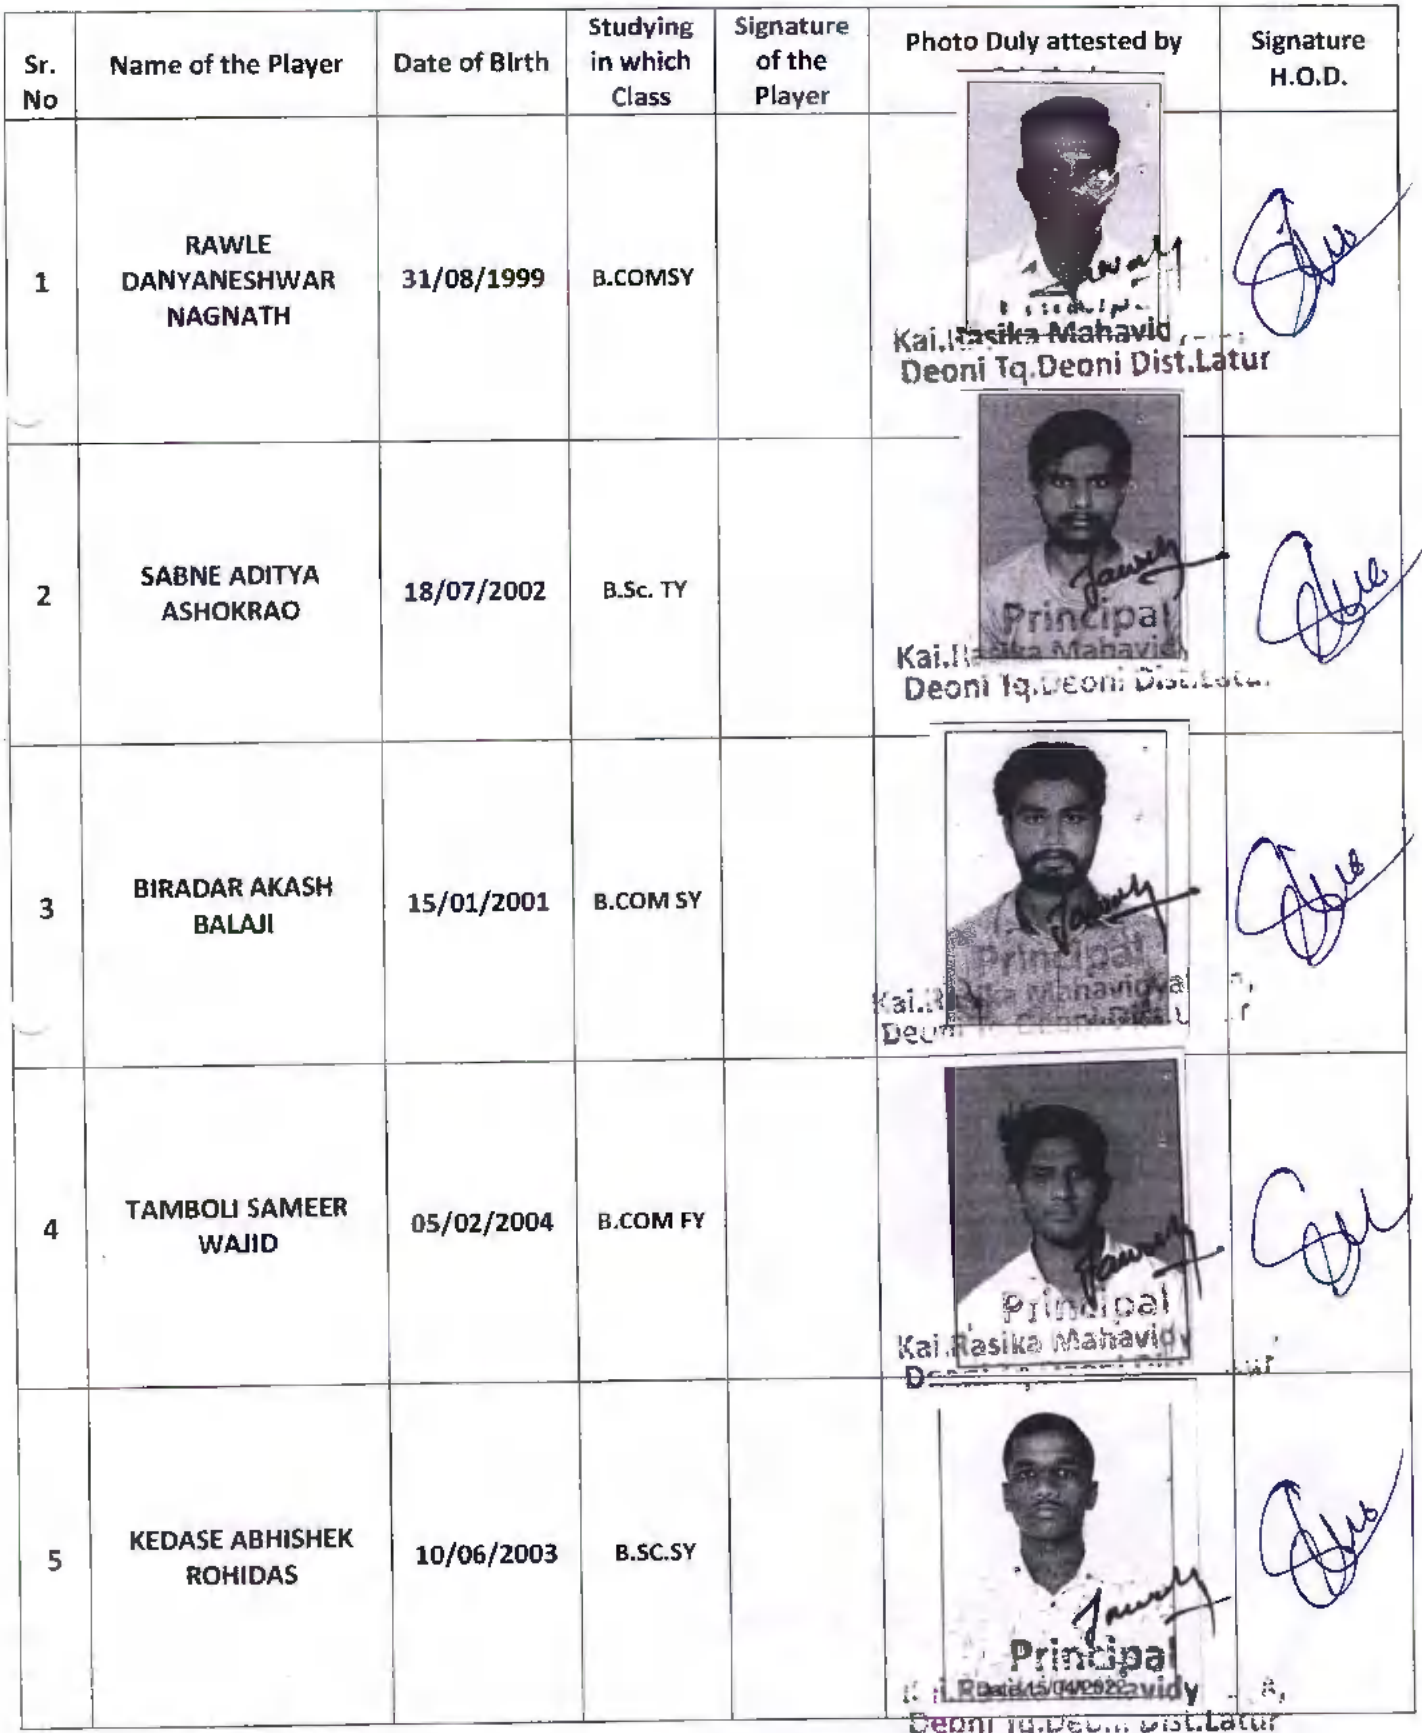 Sr. No
Name of the Player
Date of Birth
Studying in which Class
Signature of the Player
Photo Duly attested by
Signature H.O.D.
1
RAWLE
DANYANESHWAR
NAGNATH
31/08/1999
B.COMSY
Kai.Rasika Mahavid
Deoni Tq.Deoni Dist.Latur
2
SABNE ADITYA
ASHOKRAO
18/07/2002
B.Sc. TY
Principal
Kai.Rasika Mahavidy
Deoni Tq.Deoni Dist.Latur
3
BIRADAR AKASH
BALAJI
15/01/2001
B.COM SY
Principal
Kai.Rasika Mahavidya
Deoni
4
TAMBOLI SAMEER
WAJID
05/02/2004
B.COM FY
Principal
Kai.Rasika Mahavidy
5
KEDASE ABHISHEK
ROHIDAS
10/06/2003
B.SC.SY
Principal
Date:15/04/2022
Deoni Tq.Deoni Dist.Latur